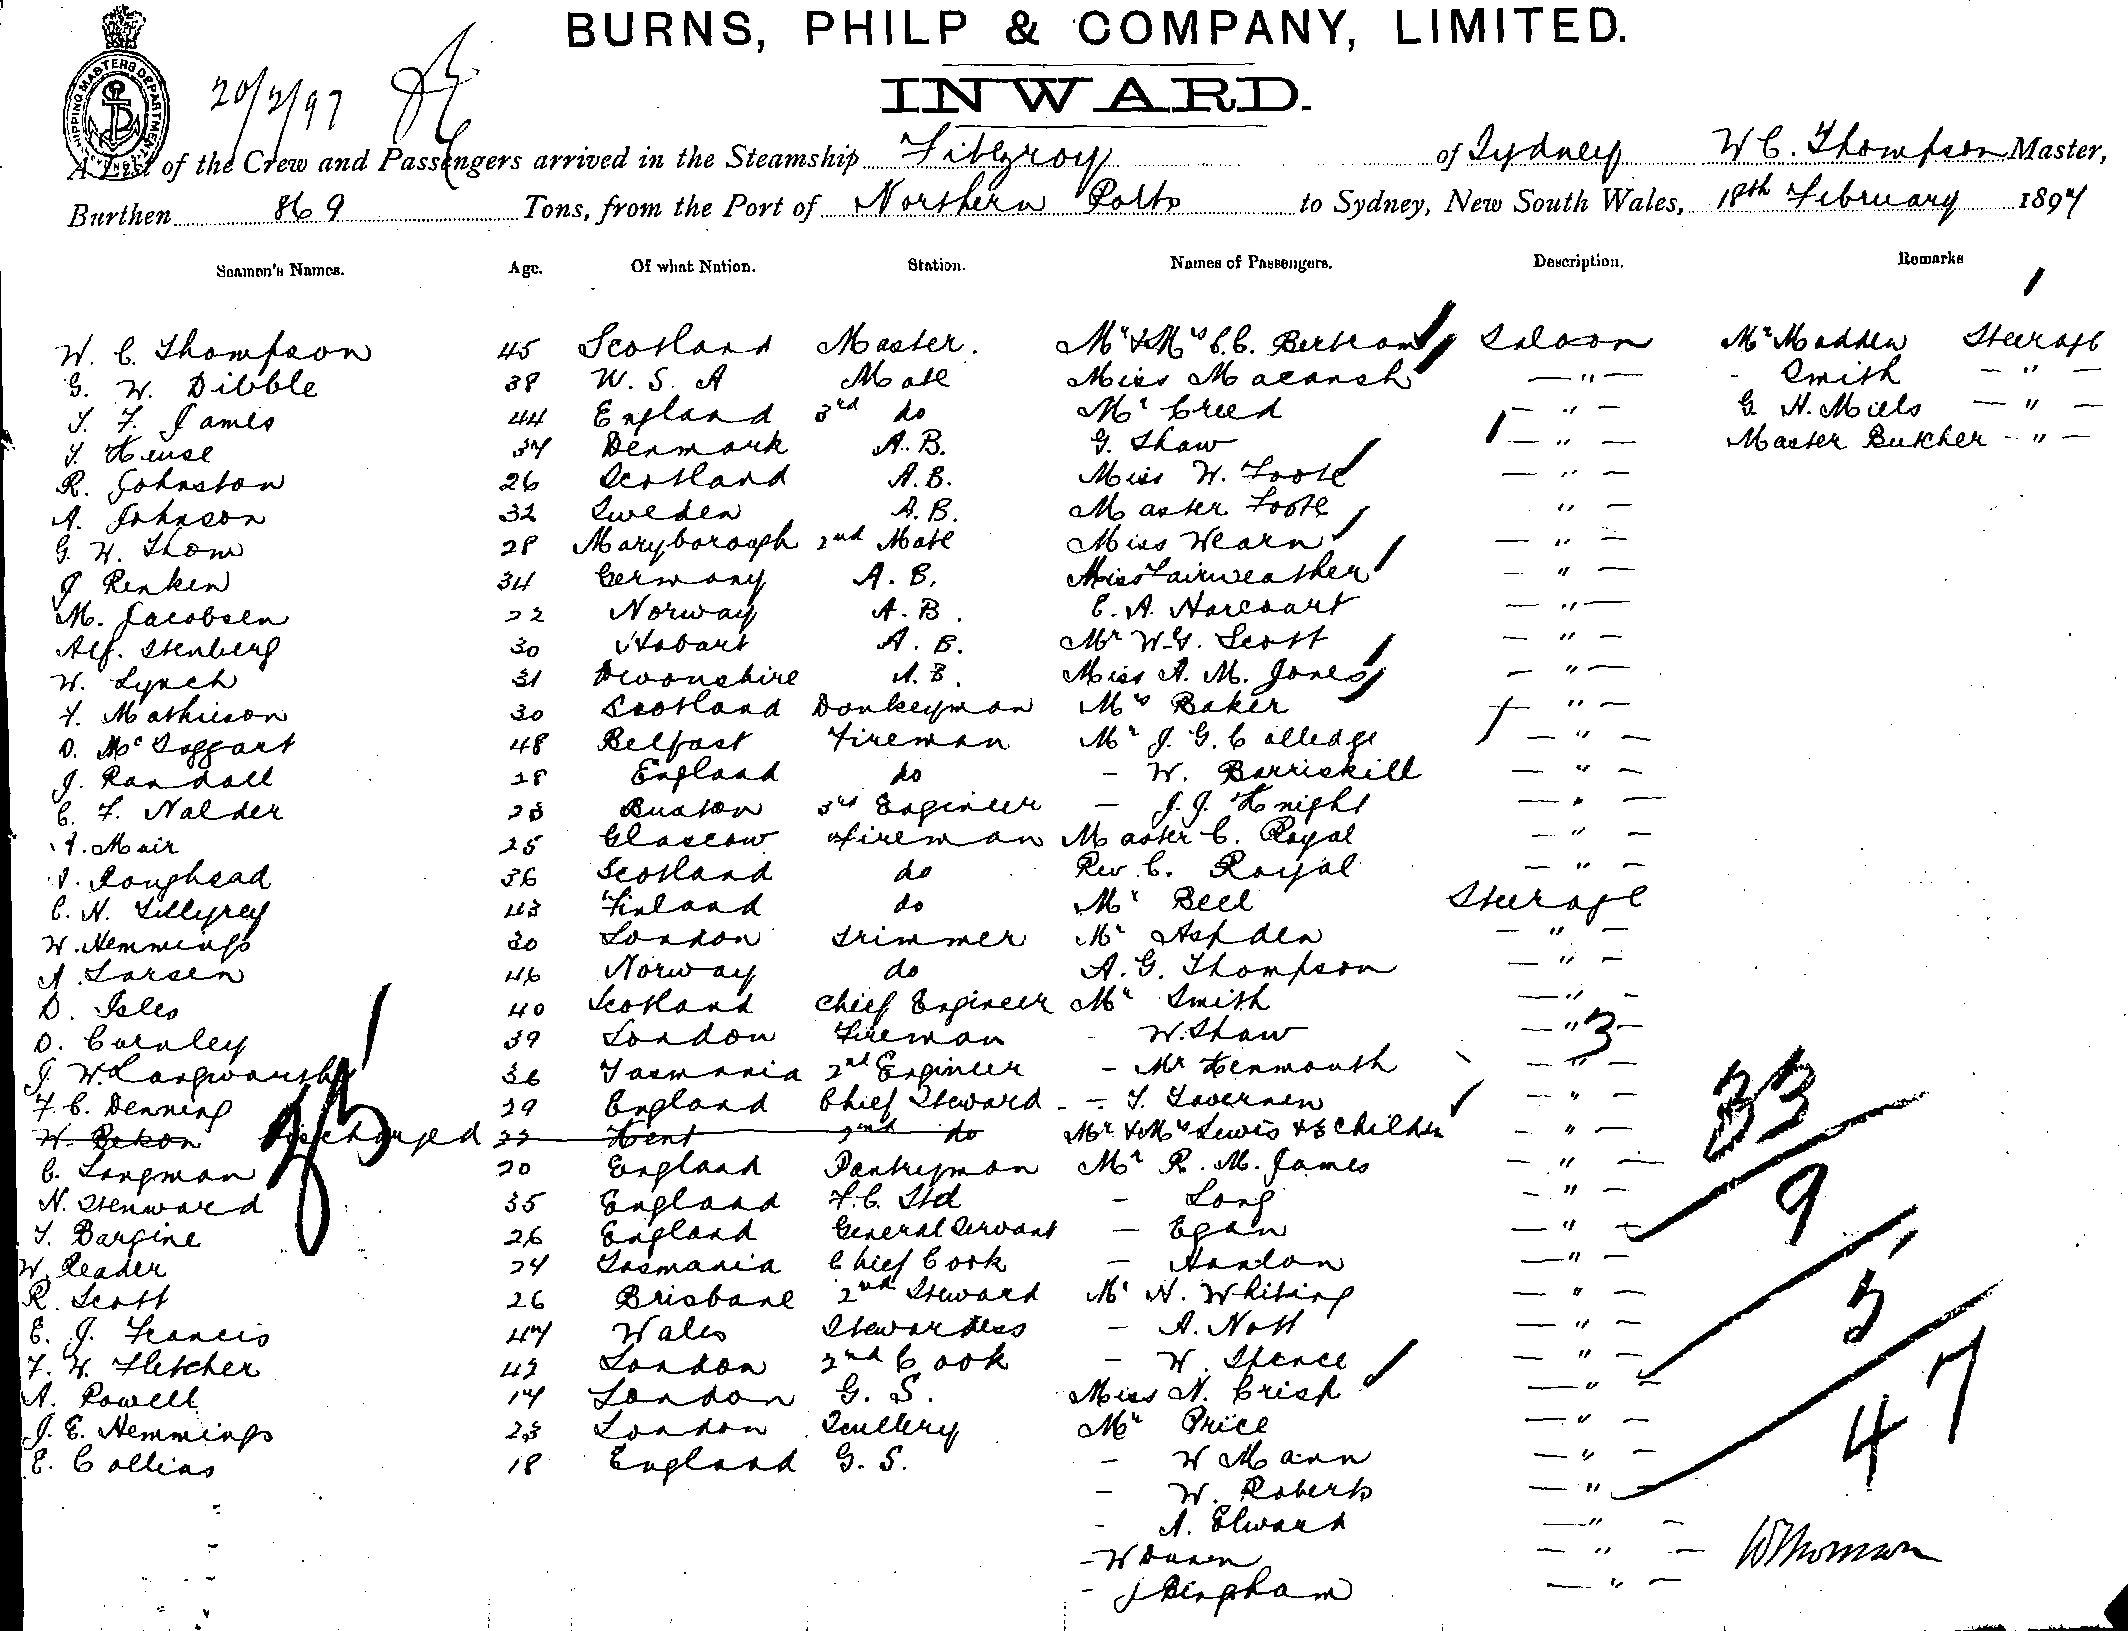 BURNS, PHILP & COMPANY, LIMITED.
INWARD.
SHIPPING MASTERS DEPARTMENT
20/2/97
A List of the Crew and Passengers arrived in the Steamship Fitzroy of Sydney W C. Thompson Master,
Burthen 869 Tons, from the Port of Northern Ports to Sydney, New South Wales, 18th February 1897
Seamen's Names. Age. Of what Nation. Station. Names of Passengers. Description. Remarks
W. C. Thompson 45 Scotland Master. Mr & Mrs C.C. Bertram Saloon Mr Madden Steerage
G. W. Dibble 38 U. S. A Mate Miss Macansh — " — - Smith — " —
T. F. James 44 England 3rd do Mr Creed — " — G. H. Miels — " —
T Keuse 37 Denmark A. B. G. Shaw — " — Master Butcher - " —
R. Johnston 26 Scotland A. B. Miss W. Foote — " —
A. Johnson 32 Sweden A. B. Master Foote " —
G. W. Thom 28 Maryborough 2nd Mate Miss Wearn — " —
J Renken 34 Germany A. B. Miss Fairweather — " —
M. Jacobsen 22 Norway A. B. C. A. Harcourt — " —
Alf. Stenberg 30 Hobart A. B. Mr W. G. Scott — " —
W. Lynch 31 Devonshire A. B. Miss A. M. Jones — " —
F. Mathieson 30 Scotland Donkeyman Mrs Baker — " —
D. McTaggart 48 Belfast Fireman Mr J. G. Colledge — " —
J. Randall 28 England do - W. Barriskill — " —
C. F. Nalder 23 Buxton 3rd Engineer — J. J. Knight — " —
A. Mair 25 Glascow Fireman Master C. Royal — " —
Roughead 36 Scotland do Rev. C. Royal — " —
C. H. Tillyrey 43 Finland do Mr Bell Steerage
W. Hemmings 30 London Trimmer Mr Aspden — " —
A. Larsen 46 Norway do A. G. Thompson — " —
D. Isles 40 Scotland Chief Engineer Mr Smith — " —
D. Curnley 39 London Fireman - W. Shaw — " — 3
J. W. Langworthy 36 Tasmania 2nd Engineer - Mr Kenmouth — " —
F. C. Denning 29 England Chief Steward - T. Tavernen — " —
W. Bekon Discharged 22 Kent 2nd do Mr & Mrs Lewis & 3 Childn — " — 33
C. Longman 20 England Pantryman Mr R. M. James — " —
H. Stenward 35 England F. C. Std - Long — " — 9
T. Bargine 26 England General Servant — Egan — " —
W. Reader 24 Tasmania Chief Cook — Hanlon — " —
R. Scott 26 Brisbane 2nd Steward Mr H. Whiting — " — 5
E. J. Francis 47 Wales Stewardess - A. Nott — " —
F. W. Fletcher 42 London 2nd Cook - W. Spence — " —
A. Powell 17 London G. S. Miss N. Crisp — " —
J. E. Hemmings 23 London Scullery Mr Price — " — 47
E. Collins 18 England G. S. - W Mann — " —
- W. Roberts — " —
- A. Elward — " —
- W Dunn — " — WThomson
- J Bingham — " —